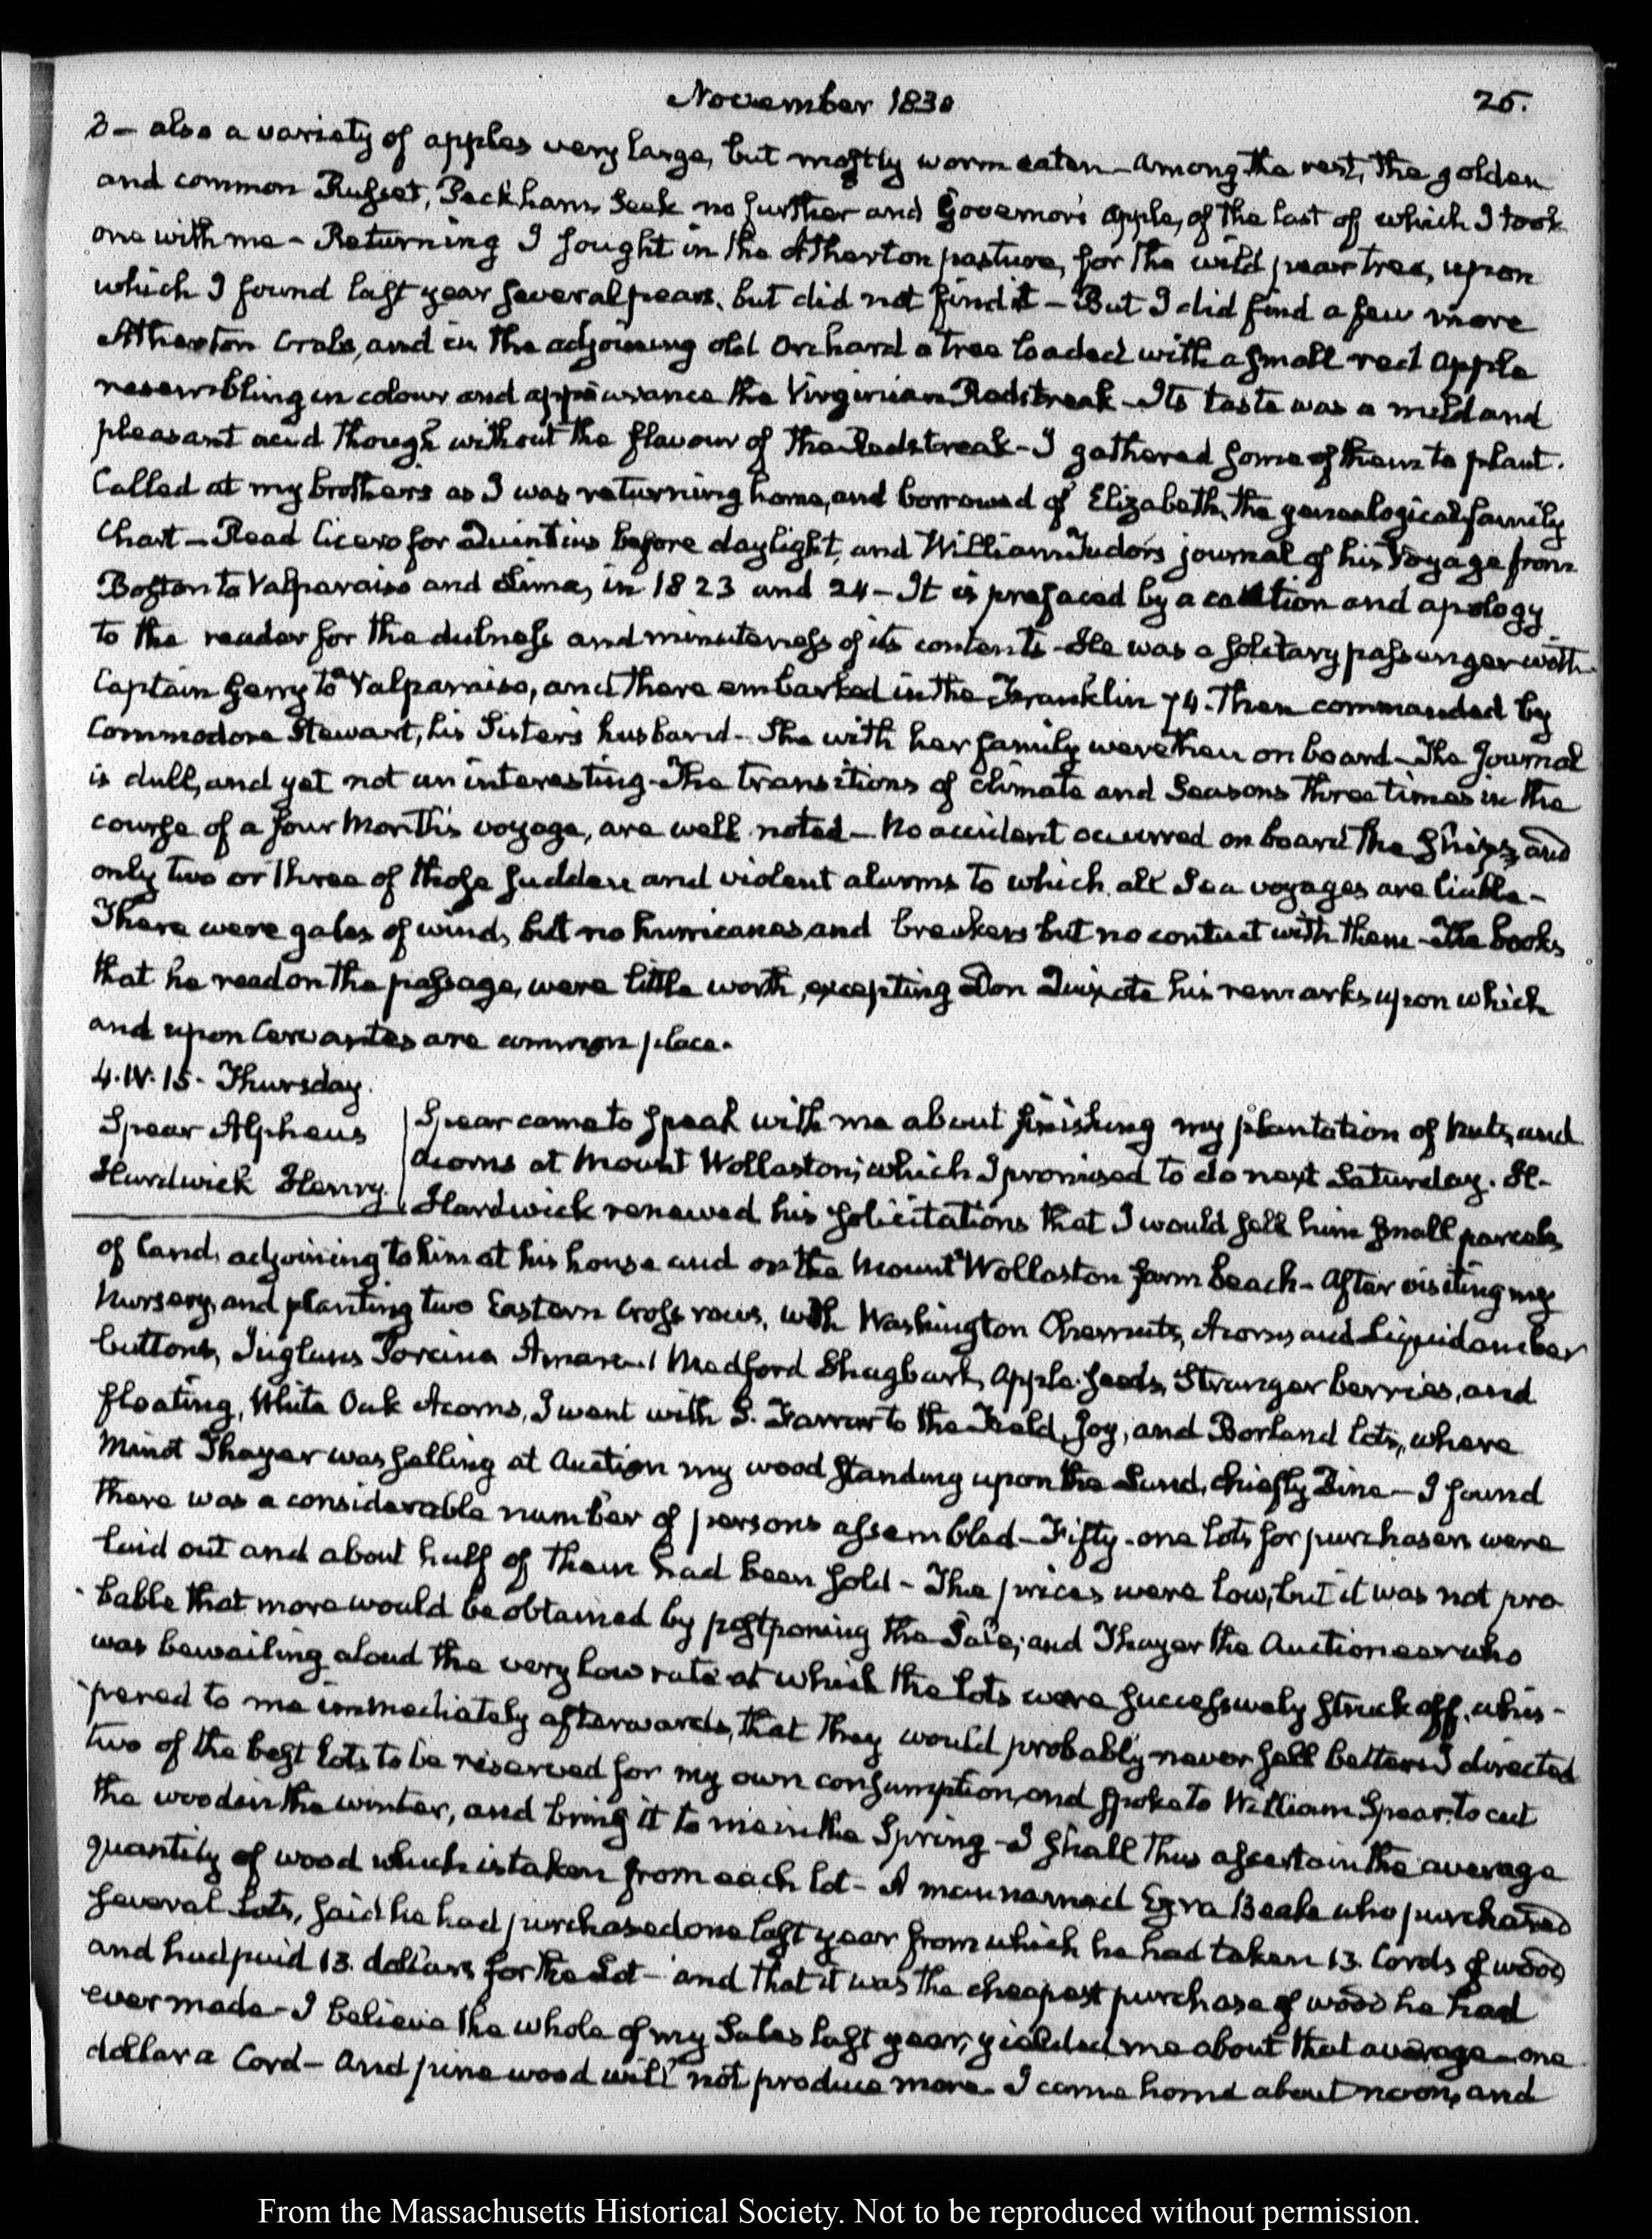 November 1830
25.
3 – also a variety of apples very large, but mostly worm eaten – among the rest, the golden
and common Russet, Peckham, Seek no further and Governor's Apple, of the last of which I took
one with me – Returning I sought in the Atherton pasture, for the wild pear tree, upon
which I found last year several pears, but did not find it – But I did find a few more
Atherton Crabs, and in the adjoining old Orchard a tree loaded with a small red apple
resembling in colour and appearance the Virginian Redstreak – Its taste was a mild and
pleasant acid though without the flavour of the Redstreak – I gathered some of them to plant.
Called at my brother's as I was returning home, and borrowed of Elizabeth, the genealogical family
Chart – Read Cicero for Quintius before daylight, and William Tudor's journal of his Voyage from
Boston to Valparaiso and Lima, in 1823 and 24 – It is prefaced by a caution and apology
to the reader for the dulness and minuteness of its contents – He was a solitary passenger with
Captain Gerry to Valparaiso, and there embarked in the Franklin 74. Then commanded by
Commodore Stewart, his Sister's husband – She with her family were then on board – The Journal
is dull, and yet not uninteresting – The transitions of climate and Seasons three times in the
course of a four Months voyage, are well noted – No accident occurred on board the ships, and
only two or three of those sudden and violent alarms to which all Sea voyages are liable –
There were gales of wind, but no hurricanes, and breakers but no contact with them – The books
that he read on the passage, were little worth, excepting Don Quixote his remarks upon which
and upon Cervantes are common place.
4. IV. 15. Thursday.
Spear Alpheus
Hardwick Henry
Spear came to speak with me about finishing my plantation of Nuts, and
Acorns at Mount Wollaston; which I promised to do next Saturday. H.
Hardwick renewed his solicitations that I would sell him small parcels
of land, adjoining to him at his house and on the Mount Wollaston farm beach – After visiting my
Nursery, and planting two Eastern Cross rows, with Washington Chesnuts, Acorns and Liquidambar
buttons, Juglans Porcina Amare Medford Shagbark, Apple seeds, Stranger berries, and
floating, White Oak Acorns, I went with S. Farrar to the Field, Joy, and Borland lots, where
Minot Thayer was selling at Auction my wood standing upon the Land, chiefly Pine – I found
there was a considerable number of persons assembled – Fifty-one lots for purchasers were
laid out and about half of them had been sold – The prices were low, but it was not pro
bable that more would be obtained by postponing the Sale; and Thayer the Auctioneer who
was bewailing aloud the very low rate at which the lots were successively struck off, whis-
pered to me immediately afterwards, that they would probably never sell better. I directed
two of the best lots to be reserved for my own consumption, and spoke to William Spear, to cut
the wood in the winter, and bring it to me in the Spring – I shall thus ascertain the average
quantity of wood which is taken from each lot – A man named Ezra Beale who purchased
several lots, said he had purchased one last year from which he had taken 13. Cords of wood
and had paid 13. dollars for the Lot – and that it was the cheapest purchase of wood he had
ever made – I believe the whole of my Sales last year, yielded me about that average – one
dollar a Cord – And pine wood will not produce more. I came home about noon, and
From the Massachusetts Historical Society. Not to be reproduced without permission.